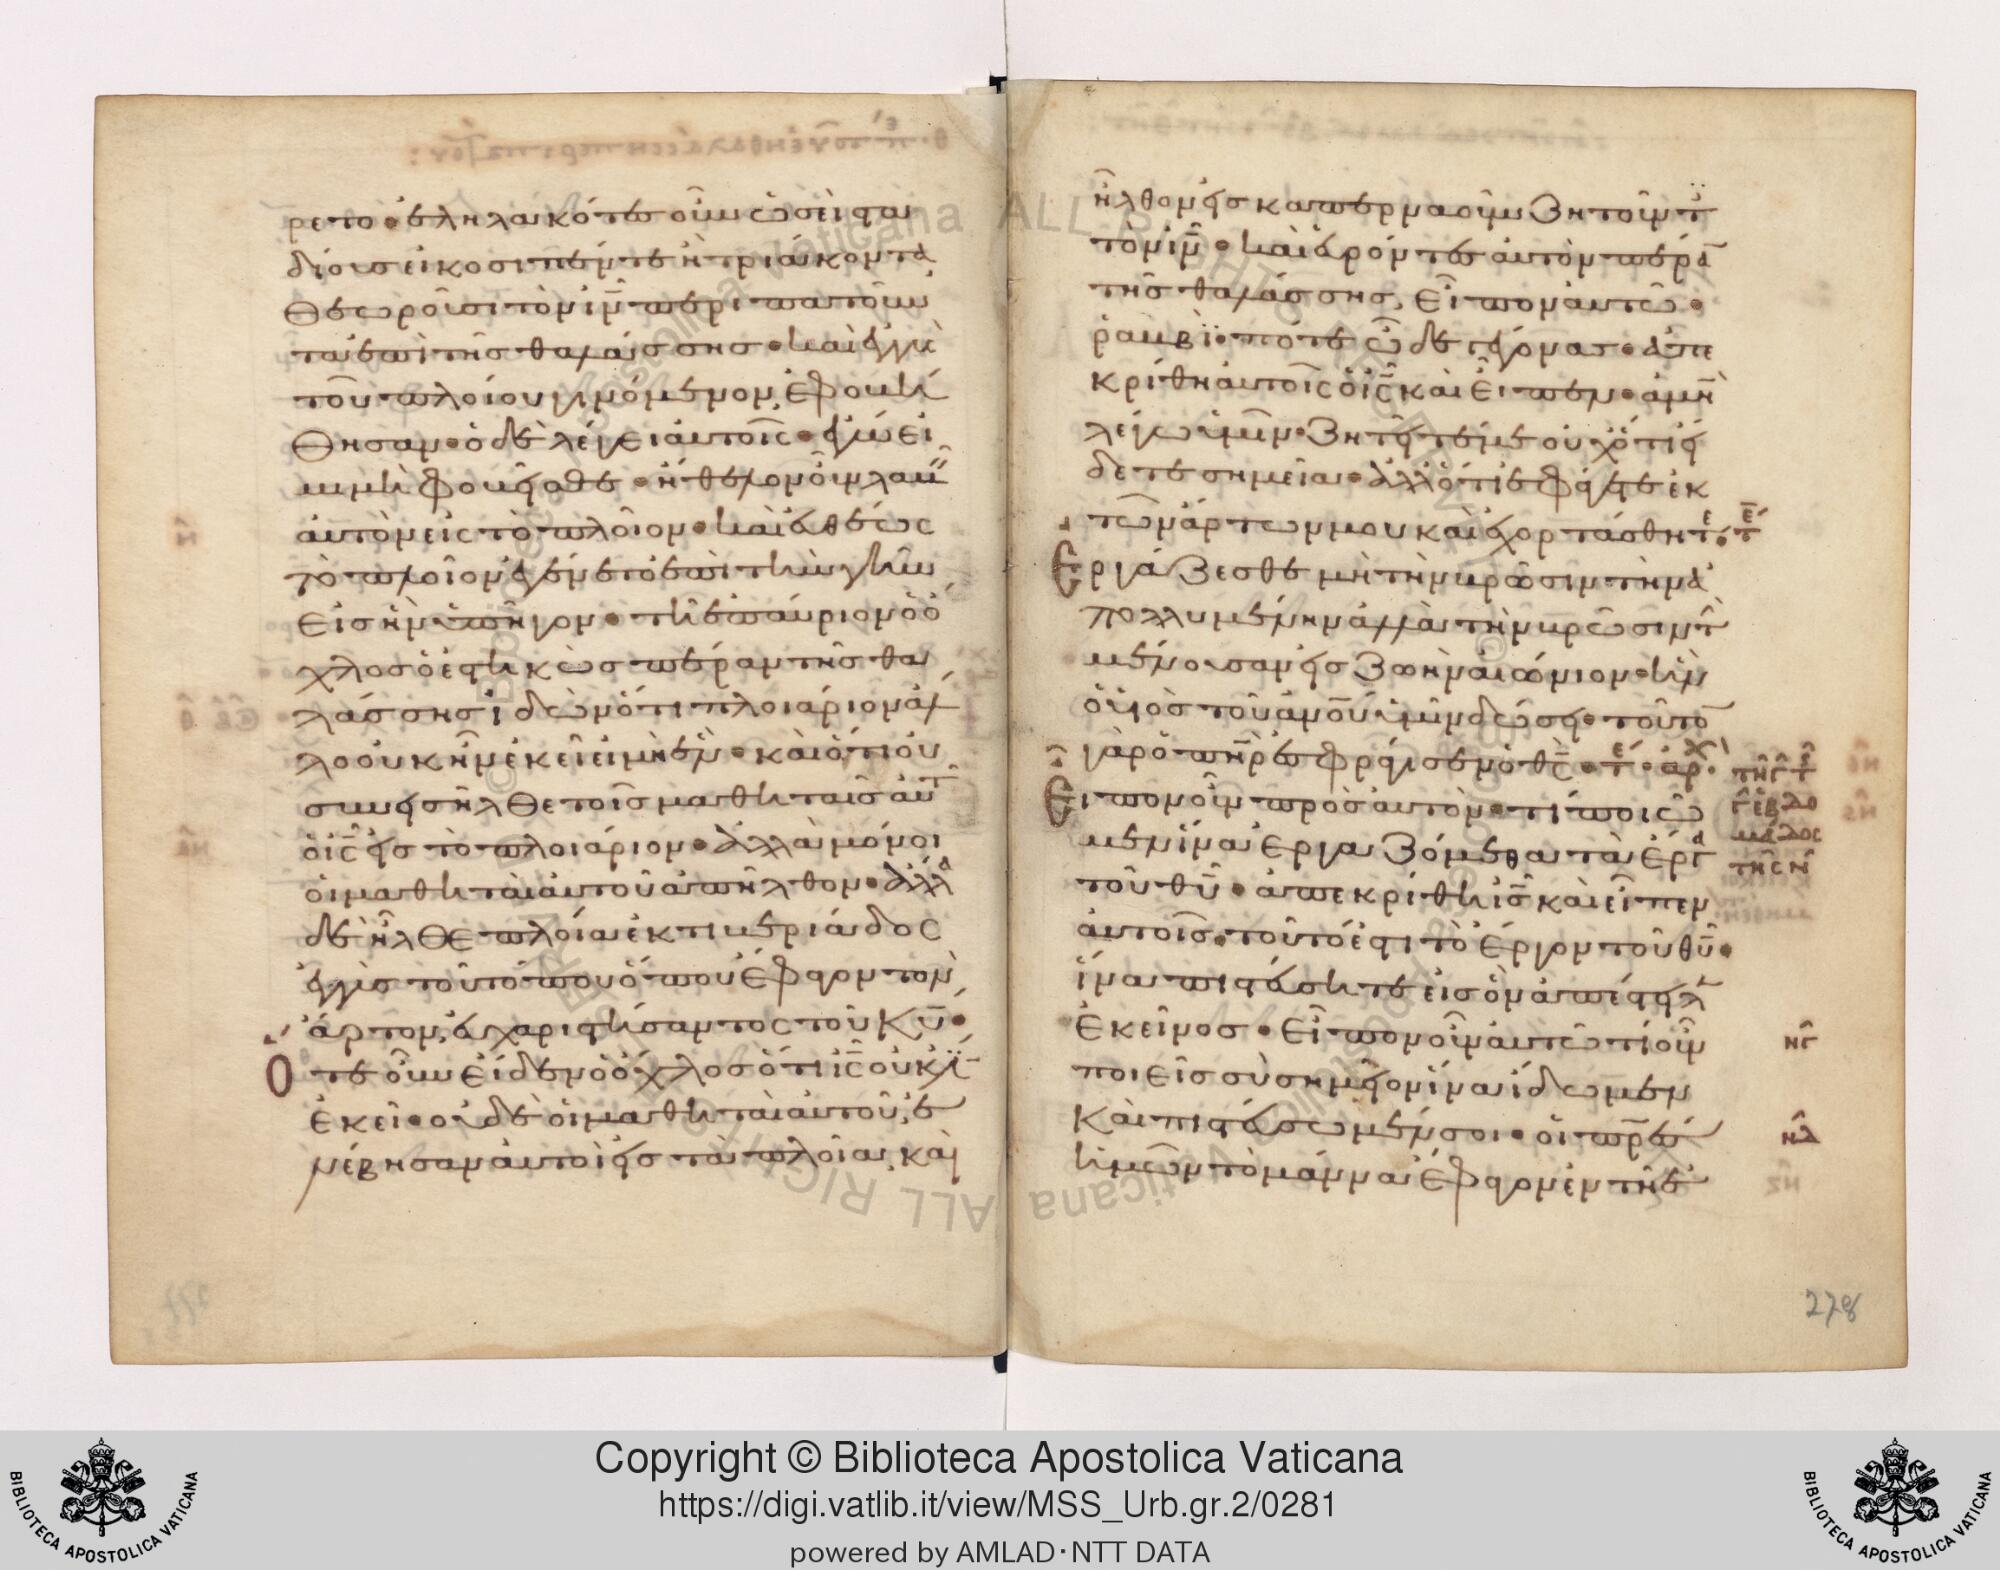 ρετο· ἐληλακότες οὖν ὡσεὶ στα
δίους εἰκοσιπέντε ἢ τριάκοντα,
θεωροῦσι τὸν ἰν̅ περιπατοῦν
τα ἐπὶ τῆς θαλάσσης· καὶ ἐγγὺ
τοῦ πλοίου γινόμενον, ἐφοβή
θησαν· ὁ δὲ λέγει αὐτοῖς· ἐγώ εἰ
μι μὴ φοβεῖσθε· ἤθελον οὖν λαβεῖν
αὐτὸν εἰς τὸ πλοῖον· καὶ εὐθέως
τὸ πλοῖον ἐγένετο ἐπὶ τὴν γῆν
εἰς ἣν ὑπῆγον· τῇ ἐπαύριον ὁ ὄ
χλος ὁ ἑστηκὼς πέραν τῆς θα
λάσσης ἰδὼν ὅτι πλοιάριον ἄλ
λο οὐκ ἦν ἐκεῖ εἰ μὴ ἕν· καὶ ὅτι οὐ
συνεισῆλθε τοῖς μαθηταῖς αὐτ
ὁ ις̅ εἰς τὸ πλοιάριον· ἀλλὰ μόνοι
οἱ μαθηταὶ αὐτοῦ ἀπῆλθον· ἄλλα
δὲ ἦλθε πλοῖα ἐκ τιβεριάδος
ἐγγὺς τοῦ τόπου ὅπου ἔφαγον τὸν
ἄρτον, εὐχαριστήσαντος τοῦ κυ̅·
Ὅτε οὖν εἶδεν ὁ ὄχλος ὅτι ις̅ οὐκ ἔϊ
ἐκεῖ· οὐδὲ οἱ μαθηταὶ αὐτοῦ, ἐ
νέβησαν αὐτοὶ εἰς τὰ πλοῖα, καὶ
ἦλθον εἰς καπερναοὺμ ζητοῦντ
τὸν ιν̅· καὶ εὑρόντες αὐτὸν πέρα
τῆς θαλάσσης, εἶπον αὐτῷ·
ῥαββΐ· πότε ὧδε γέγονας· ἀπε
κρίθη αὐτοῖς ὁ ις̅ καὶ εἶπεν· ἀμὴ
λέγω ὑμῖν· ζητεῖτέ με οὐχ ὅτι εἴ
δετε σημεῖα· ἀλλ ὅτι ἐφάγετε ἐκ
τῶν ἄρτων μου καὶ ἐχορτάσθητε·
Ἐργάζεσθε μὴ τὴν βρῶσιν τὴν ἀ
πολλυμένην ἀλλὰ τὴν βρῶσιν τὴ
μένουσαν εἰς ζωὴν αἰώνιον· ἣν
ὁ υἱὸς τοῦ ανου̅ ὑμῖν δώσει· τοῦτο
γὰρ ὁ πηρ̅ ἐσφράγισεν ὁ θς̅· τε· ἀρχ·
Εἶπον οὖν πρὸς αὐτὸν· τί ποιῶ
μεν ἵνα ἐργαζόμεθα τὰ ἔργα
τοῦ θυ̅· ἀπεκρίθη ις̅ καὶ εἶπεν
αὐτοῖς· τοῦτό ἐστι τὸ ἔργον τοῦ θυ̅·
ἵνα πιστεύσητε εἰς ὃν ἀπέστειλ
ἐκεῖνος· εἶπον οὖν αὐτῷ τί οὖν
ποιεῖς σὺ σημεῖον ἵνα ἴδωμεν
καὶ πιστεύσωμέν σοι· οἱ πρ̅ες
ἡμῶν τὸ μάννα ἔφαγον ἐν τῇ ἐ
νγ
νδ
278
Copyright © Biblioteca Apostolica Vaticana
https://digi.vatlib.it/view/MSS_Urb.gr.2/0281
powered by AMLAD·NTT DATA
BIBLIOTECA APOSTOLICA VATICANA
BIBLIOTECA APOSTOLICA VATICANA